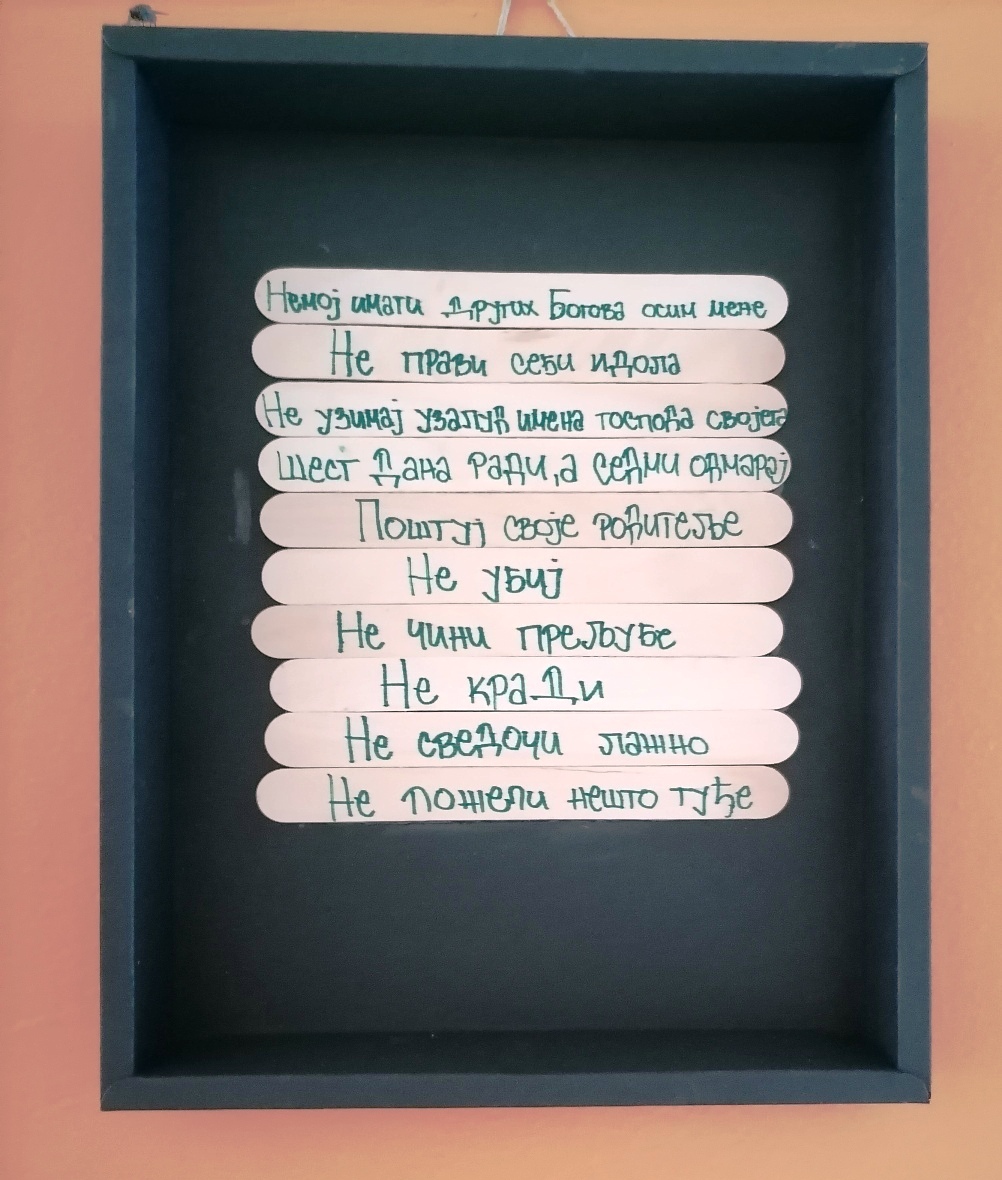 Немој имати других Богова осим мене
Не прави себи идола
Не узимај узалуд имена господа својега
Шест дана ради, а седми одмарај
Поштуј своје родитеље
Не убиј
Не чини прељубе
Не кради
Не сведочи лажно
Не пожели нешто туђе